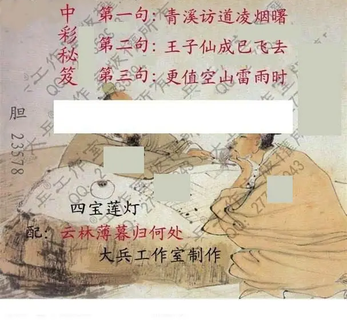 中彩秘笈
第一句：青溪访道凌烟曙
第二句：王子仙成已飞去
第三句：更值空山雷雨时
胆 23578
四宝莲灯
配：云林薄暮归何处
大兵工作室制作